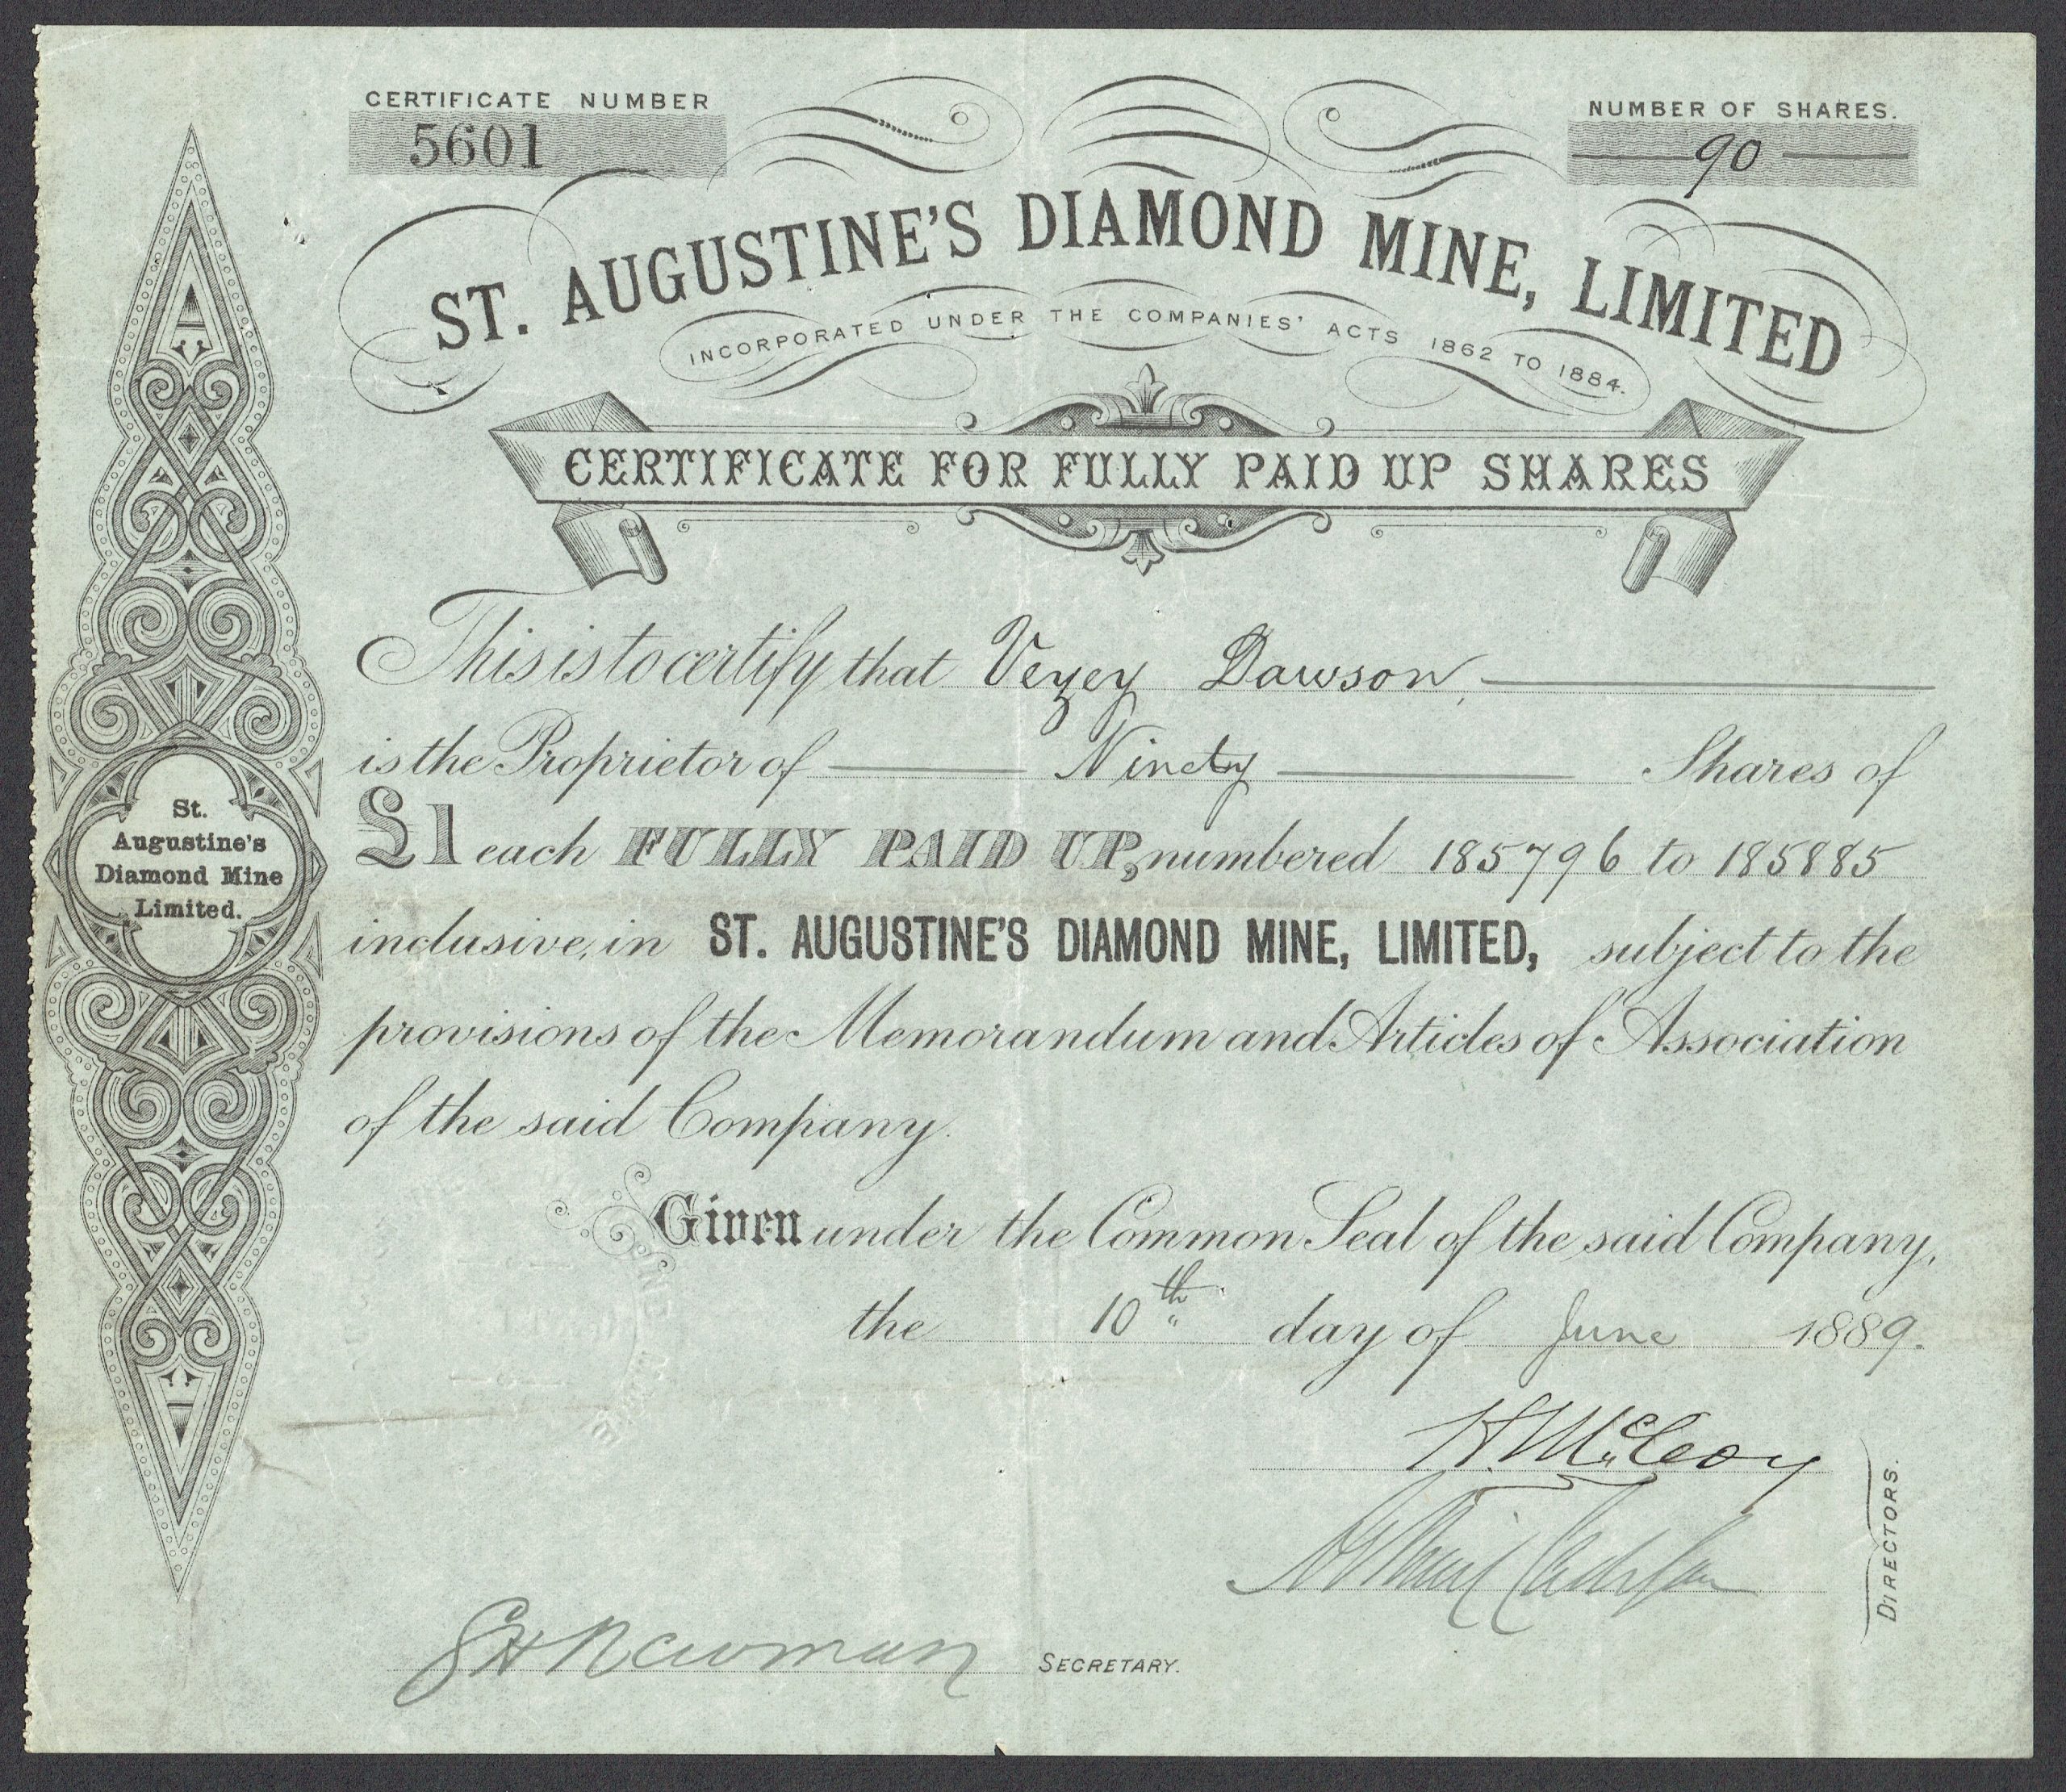 CERTIFICATE NUMBER
5601
NUMBER OF SHARES.
90
ST. AUGUSTINE'S DIAMOND MINE, LIMITED
INCORPORATED UNDER THE COMPANIES' ACTS 1862 TO 1884.
CERTIFICATE FOR FULLY PAID UP SHARES
This is to certify that Vezey Dawson
is the Proprietor of Ninety Shares of
£1 each FULLY PAID UP, numbered 185796 to 185885
inclusive, in ST. AUGUSTINE'S DIAMOND MINE, LIMITED, subject to the
provisions of the Memorandum and Articles of Association
of the said Company.
Given under the Common Seal of the said Company,
the 10th day of June 1889.
St.
Augustine's
Diamond Mine
Limited.
H. McLeoy
DIRECTORS.
Newman
SECRETARY.